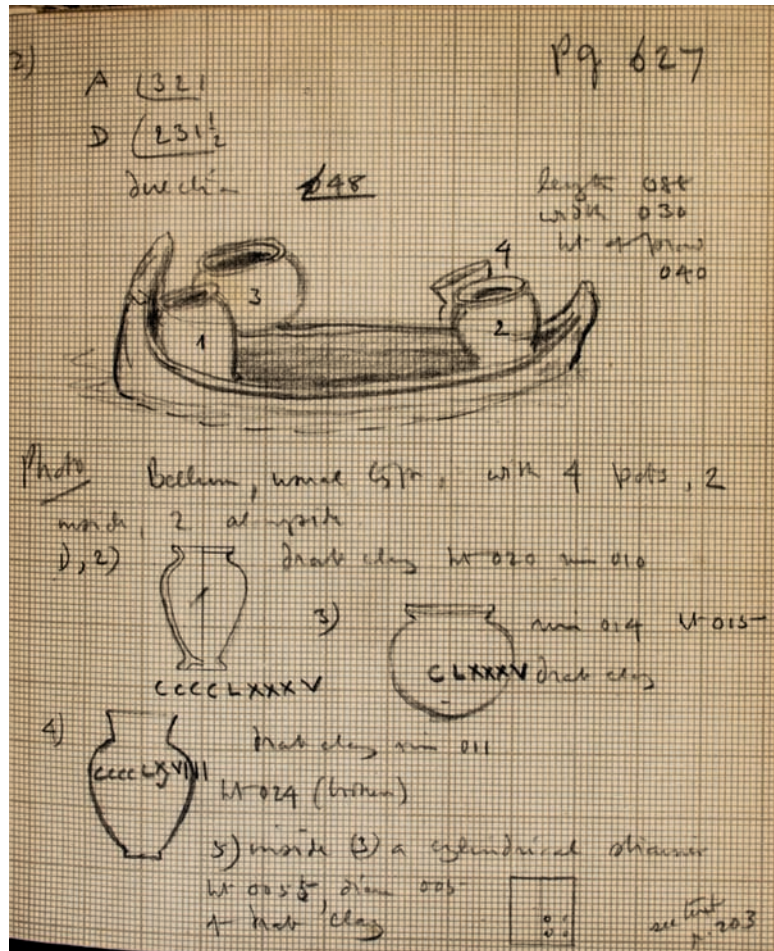 2)
Pg 627
A 321
D 231½
direction 648
length 088
width 030
ht of prow
040
3
4
1
2
Photo Bellum, usual type, with 4 pots, 2
inside, 2 alongside
1), 2) drab clay ht 020 rim 010
1
CCCCLXXXV
3) rim 014 ht 015
CLXXXV drab clay
4) drab clay rim 011
ht 024 (broken)
5) inside (3) a cylindrical strainer
ht 0055, diam 005
of drab clay
see text
p. 203